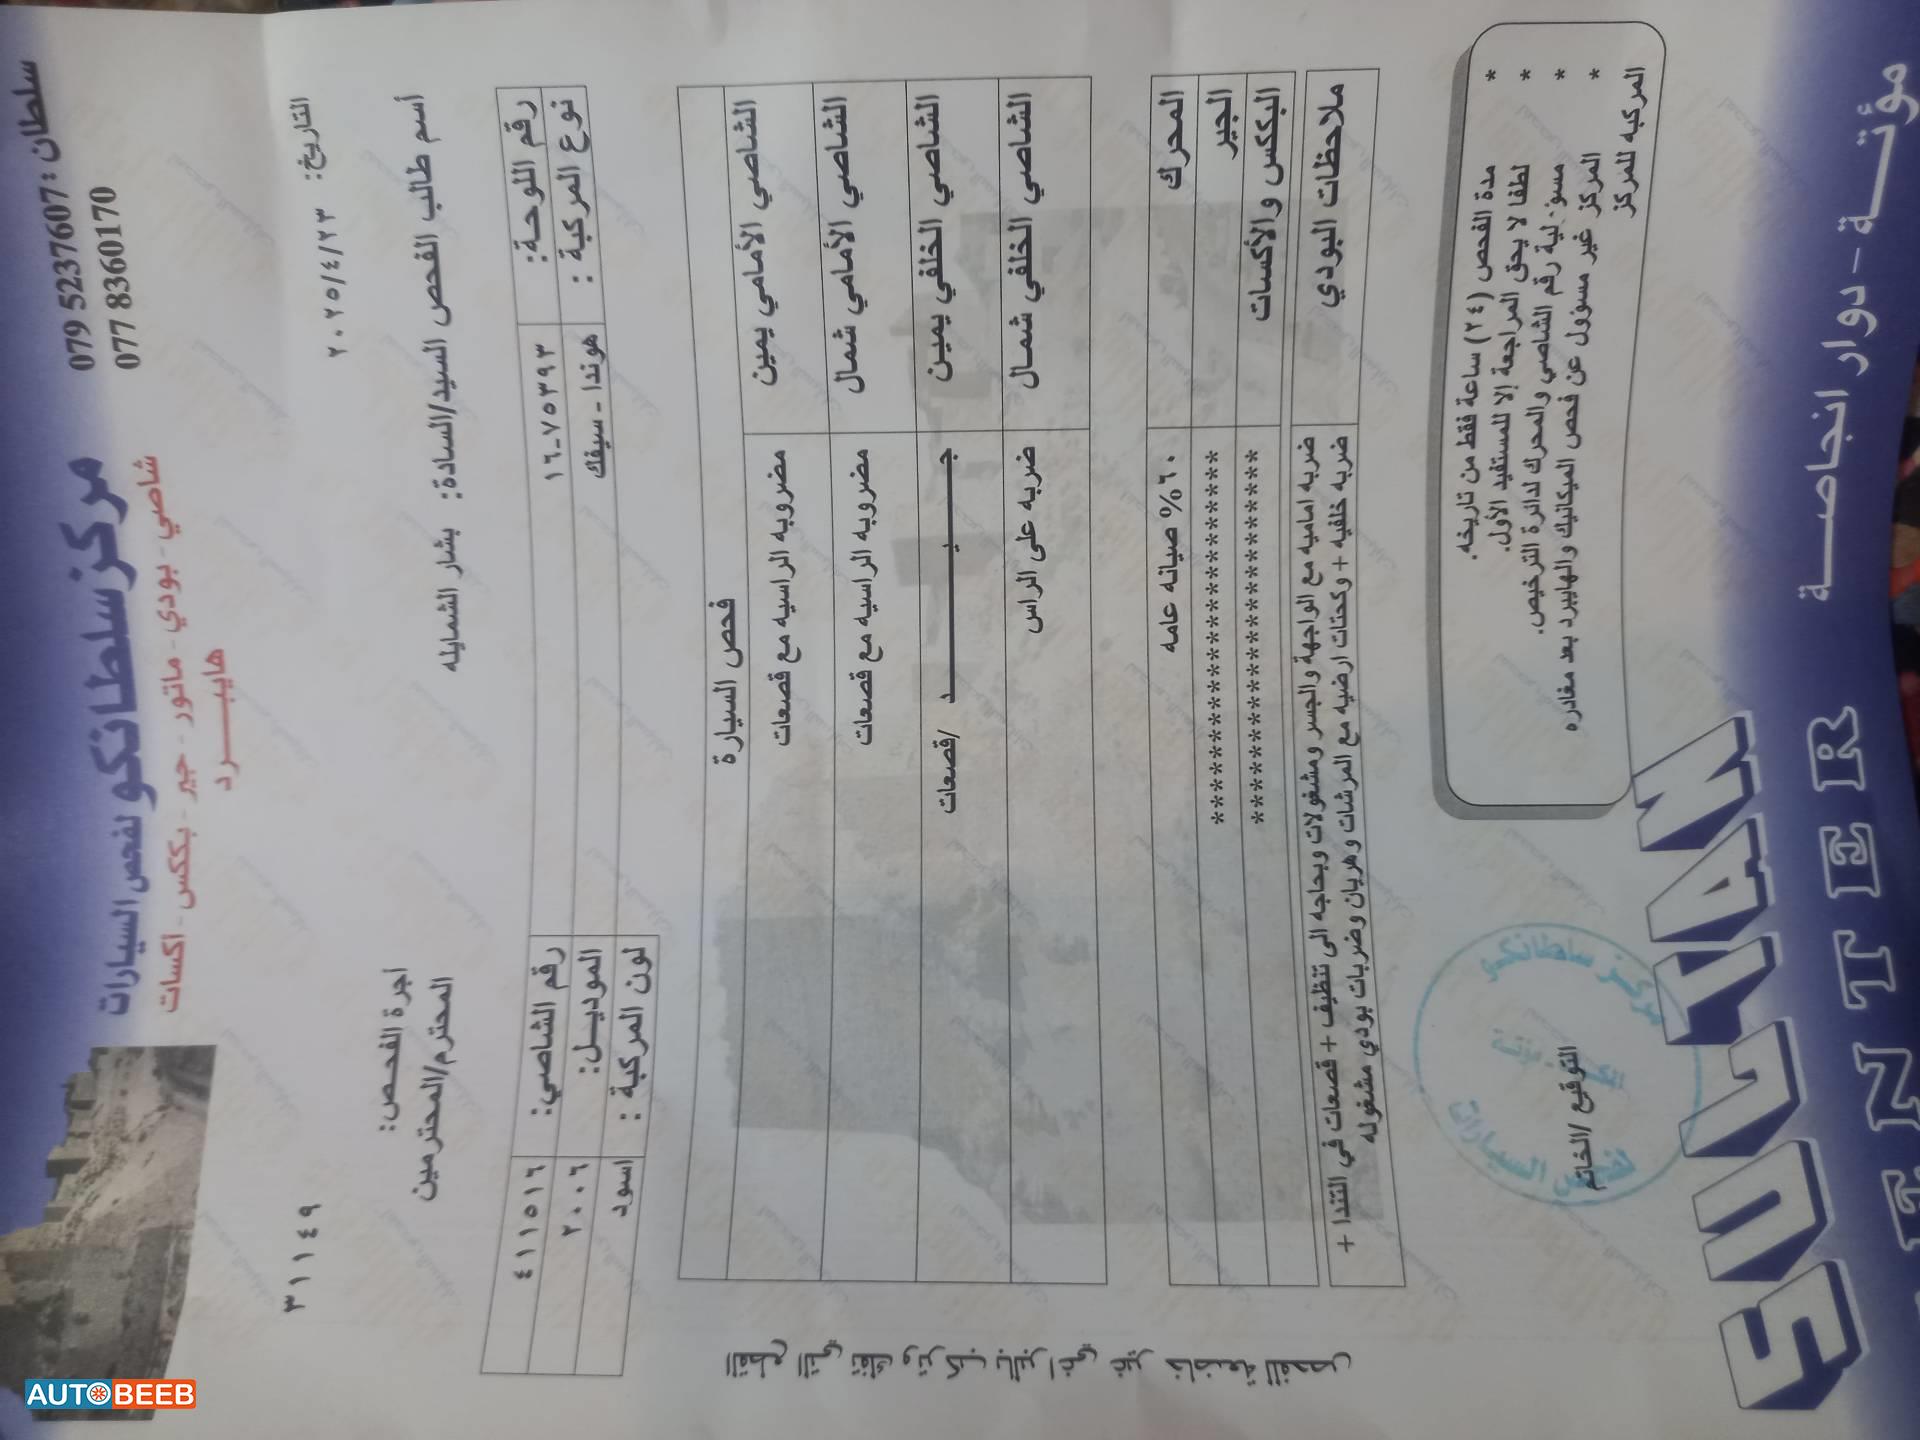 سلطان: 5237607 079
077 8360170
مركز سلطانكو لفحص السيارات
شاصي - بودي - ماتور - جير - بككس - اكسات
هايبـــرد
التاريخ: ٢٠٢٥/٤/٢٣
٣١١٤٩
أجرة الفحص:
أسم طالب الفحص السيد/السادة: بشار الشمايله المحترم/المحترمين
رقم اللوحة: ١٦-٧٥٣٩٣ رقم الشاصي: ٤١١٥١٦
نوع المركبة : هوندا - سيفك الموديـل: ٢٠٠٦
لون المركبة : اسود
فحص السيارة
الشاصي الأمامي يمين مضروبه الراسيه مع قصعات
الشاصي الأمامي شمال مضروبه الراسيه مع قصعات
الشاصي الخلفي يمين جـــيـــد /قصعات
الشاصي الخلفي شمال ضربه على الراس
المحرك ٦٠% صيانه عامه
الجير **********************
البككس والأكسات **********************
ملاحظات البودي ضربه اماميه مع الواجهة والجسر ومشغولات وبحاجه الى تنظيف + قصعات في التندا +
ضربه خلفيه + وكحتات ارضيه مع المرشات وهريان وضربات بودي مشغوله
* مدة الفحص (٢٤) ساعة فقط من تاريخه.
* لطفا لا يحق المراجعة إلا للمستفيد الأول.
* مسؤولية رقم الشاصي والمحرك لدائرة الترخيص.
* المركز غير مسؤول عن فحص الميكانيك والهايبرد بعد مغادره
المركبه للمركز
التوقيع /الخاتم
مركز سلطانكو
لفحص السيارات
SULTAN
CENTER
مؤتـــة - دوار انجاصـــة
AUTOBEEB